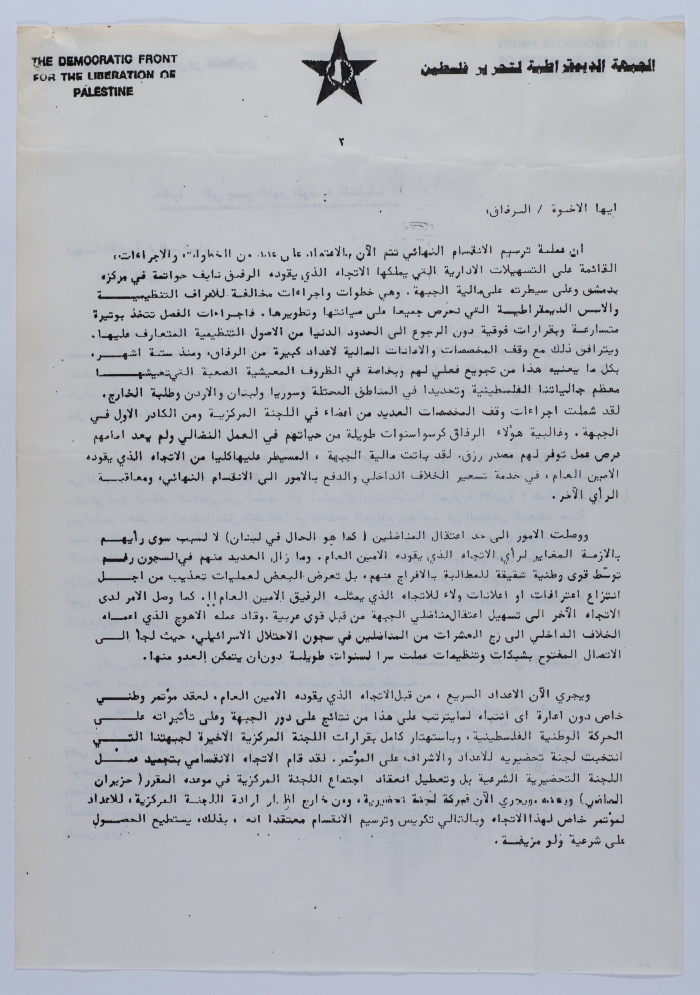 THE DEMOCRATIC FRONT
FOR THE LIBERATION OF
PALESTINE
الجبهة الديمقراطية لتحرير فلسطين
٢
ايها الاخوة / الرفاق،
ان عملية ترسيم الانقسام النهائي تتم الآن بالاعتماد على عدد من الخطوات والاجراءات،
القائمة على التسهيلات الادارية التي يملكها الاتجاه الذي يقوده الرفيق نايف حواتمة في مركزه
بدمشق وعلى سيطرته على مالية الجبهة. وهي خطوات واجراءات مخالفة للاعراف التنظيميـــة
والاسس الديمقراطيـة التي نحرص جميعا على صيانتها وتطويرها. فاجراءات الفصل تتخذ بوتيرة
متسارعة وبقرارات فوقية دون الرجوع الى الحدود الدنيا من الاصول التنظيمية المتعارف عليهـا.
ويترافق ذلك مع وقف المخصصات والاعانات المالية لاعداد كبيرة من الرفاق، ومنذ ستة اشهـر،
بكل ما يعنيه هذا من تجويع فعلي لهم وبخاصة في الظروف المعيشية الصعبة التي تعيشهـــا
معظم جالياتنا الفلسطينية وتحديدا في المناطق المحتلة وسوريا ولبنان والاردن وطلبة الخارج.
لقد شملت اجراءات وقف المخصصات العديد من اعضاء في اللجنة المركزية ومن الكادر الاول في
الجبهة. وغالبية هؤلاء الرفاق كرسوا سنوات طويلة من حياتهم في العمل النضالي ولم يعد امامهم
فرص عمل توفر لهم مصدر رزق. لقد باتت مالية الجبهة ، المسيطر عليها كليا من الاتجاه الذي يقوده
الامين العام، في خدمة تسعير الخلاف الداخلي والدفع بالامور الى الانقسام النهائي، ومعاقبـة
الرأي الآخر.
ووصلت الامور الى حد اعتقال المناضلين ( كما هو الحال في لبنان) لا لسبب سوى رأيهـم
بالازمة المغاير لرأي الاتجاه الذي يقوده الامين العام. وما زال العديد منهم في السجون رغـم
توسّط قوى وطنية شقيقة للمطالبة بالافراج عنهم، بل تعرض البعض لعمليات تعذيب من اجـل
انتزاع اعترافات او اعلانات ولاء للاتجاه الذي يمثلـه الرفيق الامين العام!!. كما وصل الامر لدى
الاتجاه الآخر الى تسهيل اعتقال مناضلي الجبهة من قبل قوى عربية .وقاد عمله الاهوج الذي اعمـاه
الخلاف الداخلي الى زج العشرات من المناضلين في سجون الاحتلال الاسرائيلي، حيث لجأ الـــى
الاتصال المفتوح بشبكات وتنظيمات عملت سرا لسنوات طويلـة دون ان يتمكن العدو منهـا.
ويجري الآن الاعداد السريع ، من قبل الاتجاه الذي يقوده الامين العام، لعقد مؤتمر وطنــي
خاص دون اعارة اى انتباه لما يترتب على هذا من نتائج على دور الجبهة وعلى تأثيراته علــى
الحركة الوطنية الفلسطينية، وباستهتار كامل بقرارات اللجنة المركزية الاخيرة لجبهتنا التــي
انتخبت لجنة تحضيرية للاعداد والاشراف على المؤتمر. لقد قام الاتجاه الانقسامي بتجميد عمــل
اللجنة التحضيرية الشرعية بل وتعطيل انعقاد اجتماع اللجنة المركزية في موعده المقرر( حزيران
الماضي) ويجري الآن فبركة لجنة تحضيرية، ومن خارج اطـار ارادة اللجنـة المركزية، للاعداد
لمؤتمر خاص لهذا الاتجاه وبالتالي تكريس وترسيم الانقسام معتقدا انه ، بذلك، يستطيع الحصـول
على شرعية ولو مزيفـة.